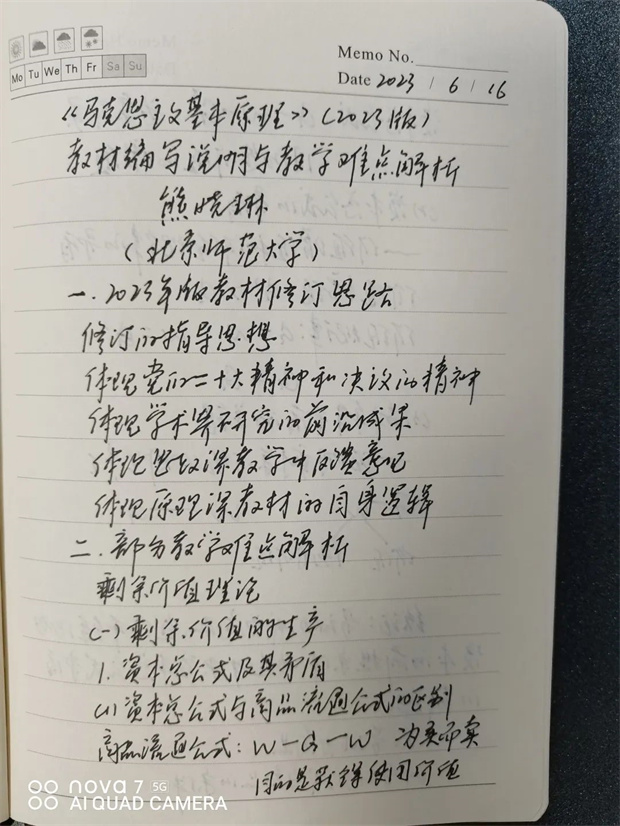 Memo No.
Mo Tu We Th Fr Sa Su
Date 2023 / 6 / 16
《马克思主义基本原理》(2023版)
教材编写说明与教学难点解析
熊晓琳
(北京师范大学)
一.2023年版教材修订思路
修订的指导思想
体现党的二十大精神和决议的精神
体现学术界研究的前沿成果
体现思政课教学中反馈意见
体现原理课教材的自身逻辑
二.部分教学难点解析
剩余价值理论
(一)剩余价值的生产
1.资本总公式及其矛盾
(1)资本总公式与商品流通公式的区别
商品流通公式:W-G-W 为买而卖
目的是获得使用价值
nova 7 5G
AI QUAD CAMERA